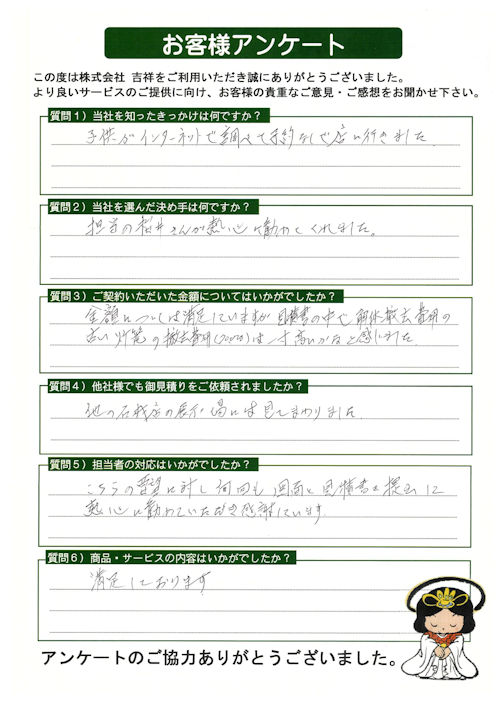 お客様アンケート
この度は株式会社 吉祥をご利用いただき誠にありがとうございました。
より良いサービスのご提供に向け、お客様の貴重なご意見・ご感想をお聞かせ下さい。
質問1）当社を知ったきっかけは何ですか？
子供がインターネットで調べて予約なしで店に行きました
質問2）当社を選んだ決め手は何ですか？
担当の桜井さんが熱心に勧めてくれました。
質問3）ご契約いただいた金額についてはいかがでしたか？
金額については満足していますが見積書の中で解体撤去費用の
古い灯篭の撤去費用()は一寸高いかなと感じました
質問4）他社様でも御見積りをご依頼されましたか？
他の石材店の展示場には見てまわりました
質問5）担当者の対応はいかがでしたか？
こちらの要望に対し何回も図面と見積書を提出して
熱心に勧めていただき感謝しています
質問6）商品・サービスの内容はいかがでしたか？
満足しております
アンケートのご協力ありがとうございました。